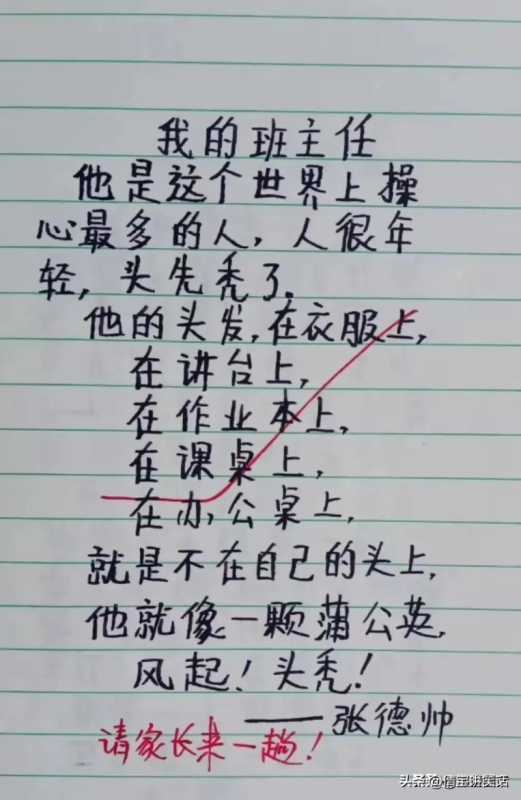 我的班主任
他是这个世界上操
心最多的人，人很年
轻，头先秃了.
他的头发,在衣服上,
在讲台上,
在作业本上,
在课桌上,
在办公桌上,
就是不在自己的头上,
他就像一颗蒲公英,
风起！头秃！
——张德帅
请家长来一趟！